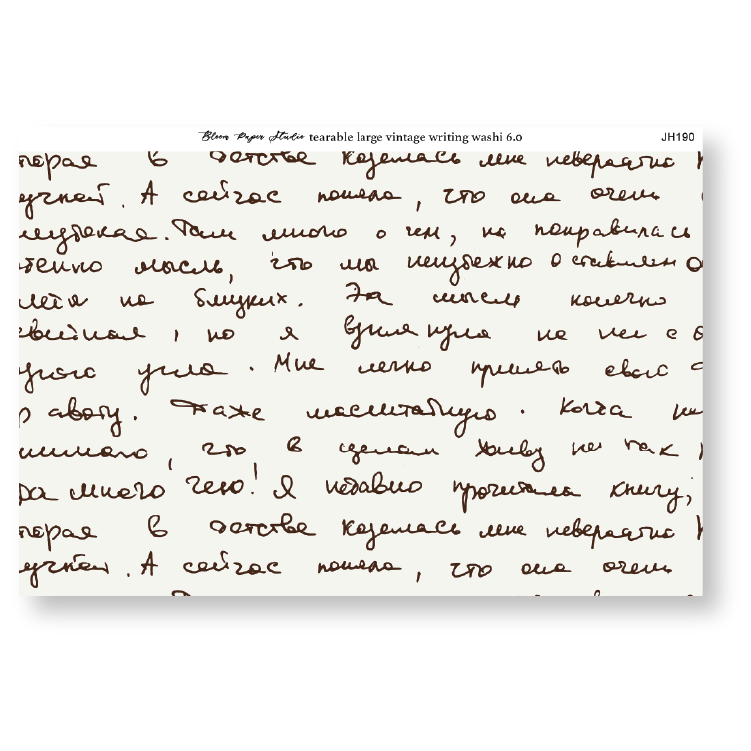 Bloom Paper Studio tearable large vintage writing washi 6.0 JH190
торая в детстве казалась мне невероятно
учной. А сейчас поняла, что она очень
Там много о чем, но понравилась
мысль, что мы неизбежно оставляем
на близких. Эта мысль конечно
но я взглянула на нее с
угла. Мне легко принять свою
заботу. Даже масштабную. Когда
что в сделан живу не так
да много чего! Я недавно прочитала книгу,
торая в детстве казалась мне невероятно
учной. А сейчас поняла, что она очень